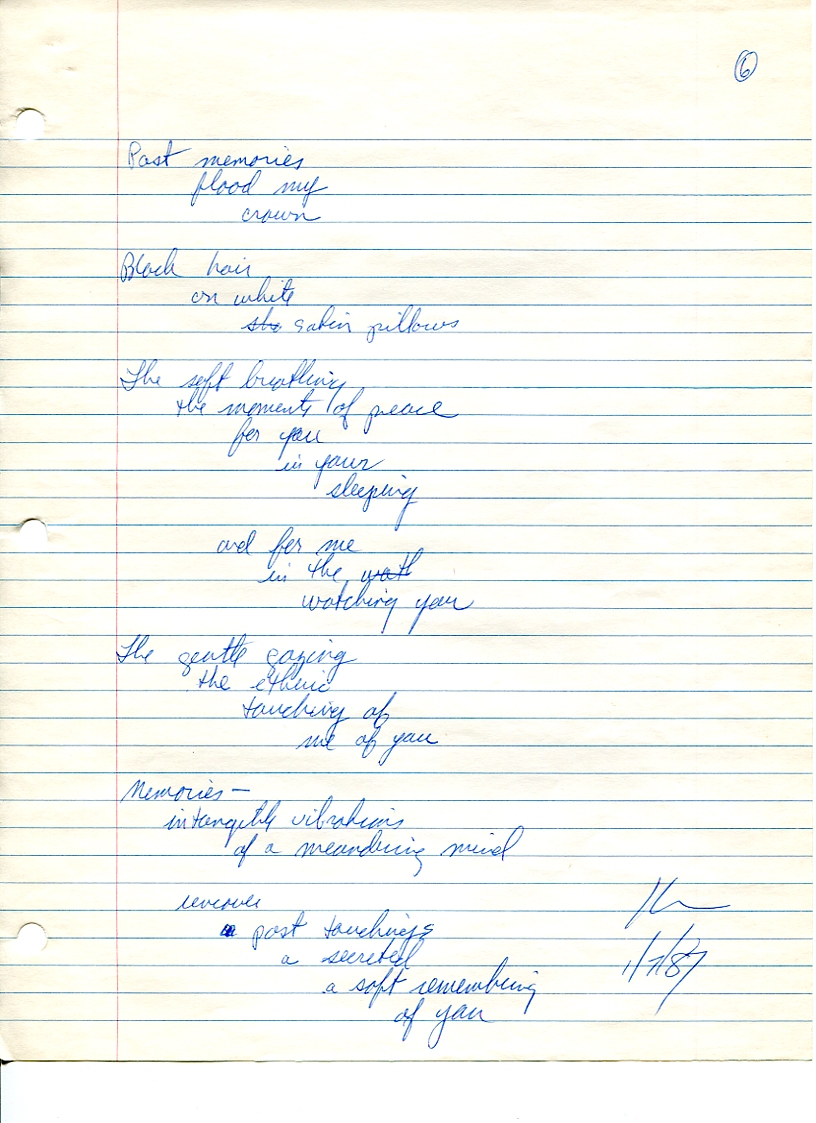 6
Past memories
flood my
crown
Black hair
on white
satin pillows
The soft breathing
the moments of peace
for you
in your
sleeping
and for me
in the
watching you
The gentle gazing
the
touching of
me of you
Memories —
intangible vibrations
of a meandering mind
uncover
past touchings
a
a soft remembering
of you
1/7/87